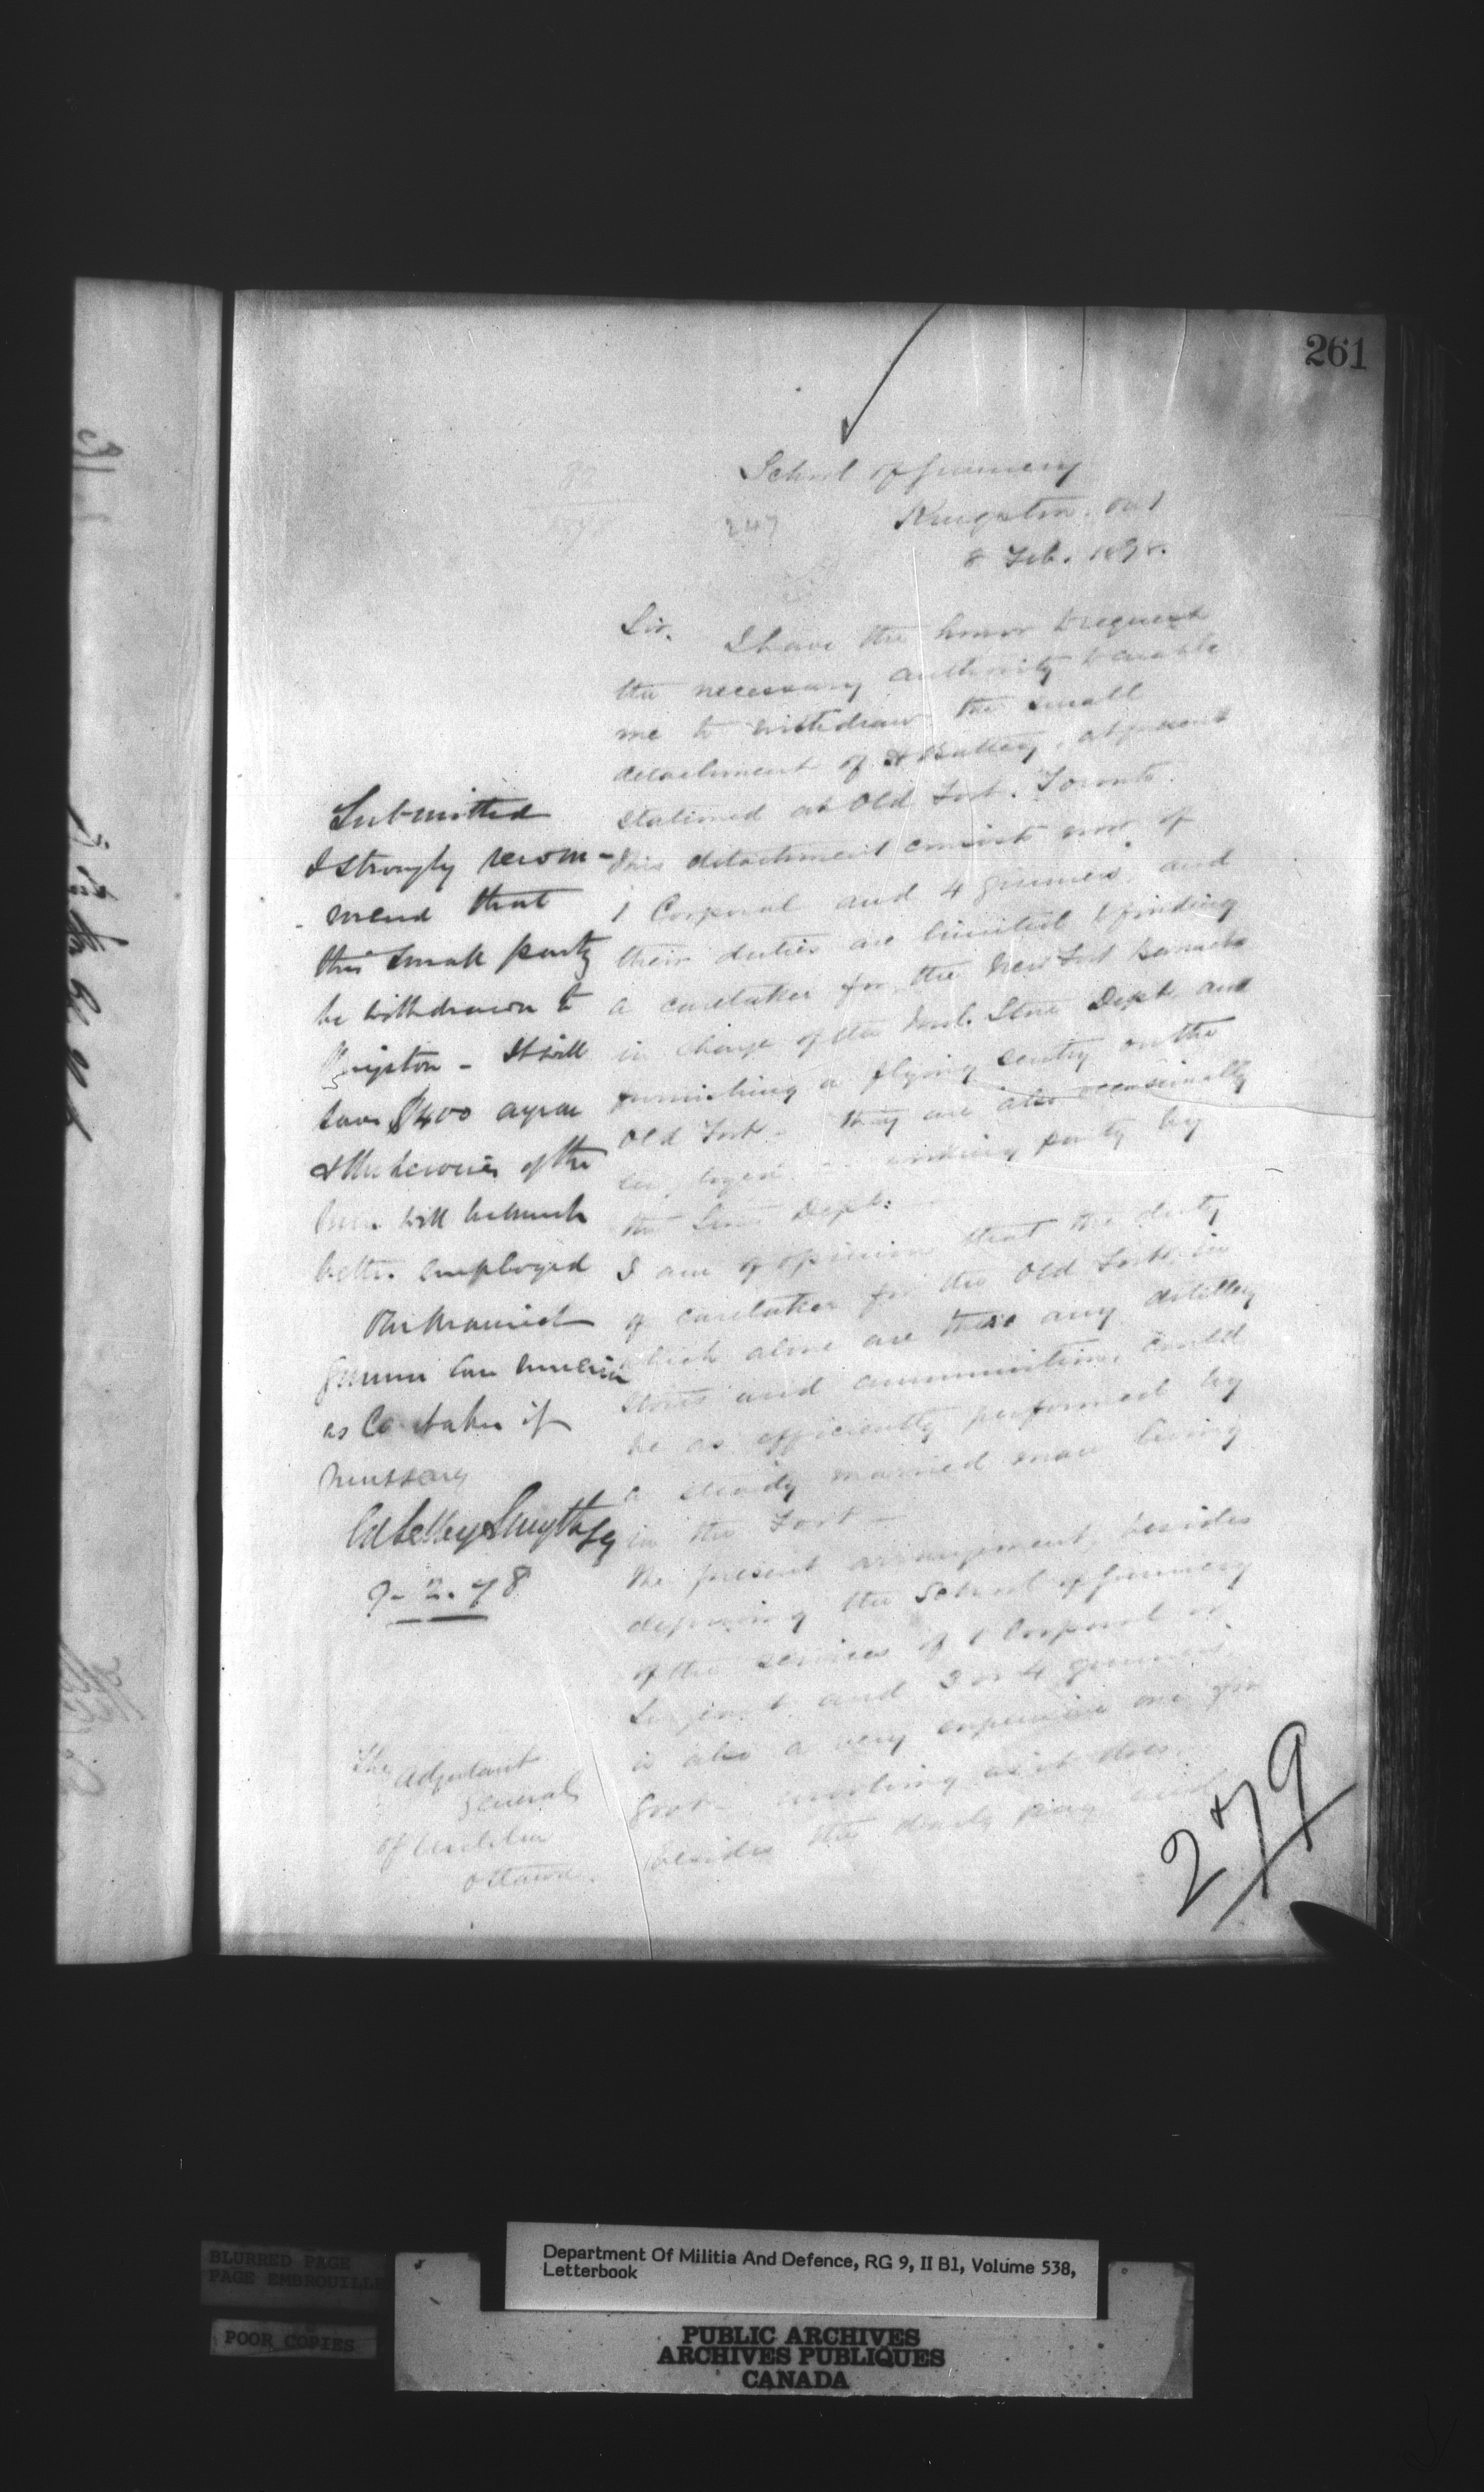 261
School of Gunnery
247
Kingston. Ont
8 Feb. 1878.
Sir. I have the honor to request
the necessary authority to enable
me to withdraw the small
detachment of A Battery, at present
stationed at Old Fort. Toronto.
This detachment consists now of
1 Corporal and 4 gunners, and
their duties are limited to finding
a caretaker for the New Fort Barracks
in charge of the Store Dept and
furnishing a flying sentry on the
Old Fort - They are also occasionally
party by
the Store Dept:
I am of opinion that the duty
of caretaker for the Old Fort, in
which alone are there any artillery
stores and ammunition, could
be as efficiently performed by
a steady married man living
in the Fort -
The present arrangement, besides
depriving the School of Gunnery
of the services of 1 Corporal or
Sergeant and 3 or 4 gunners,
is also a very expensive one for
Govt - involving as it does,
besides the daily pay and
Submitted
I strongly recom-
- mend that
this small party
be withdrawn to
Kingston - It will
save $400 a year
& the services of the
men will be much
better employed
One married
gunner can remain
as Caretaker if
necessary
Ed Selby Smyth Lg
9 - 2. 78
The Adjutant
General
of Militia
Ottawa.
279
BLURRED PAGE
PAGE EMBROUILLE
POOR COPIES
Department Of Militia And Defence, RG 9, II B1, Volume 538,
Letterbook
PUBLIC ARCHIVES
ARCHIVES PUBLIQUES
CANADA